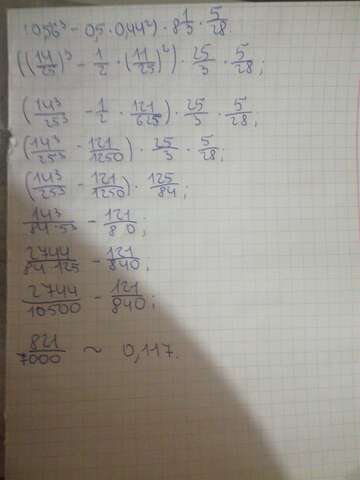 (0,56³ - 0,5 · 0,44²) · 8 1/3 · 5/28.
((14/25)³ - 1/2 · (11/25)²) · 25/3 · 5/28;
(14³/25³ - 1/2 · 121/625) · 25/3 · 5/28;
(14³/25³ - 121/1250) · 25/3 · 5/28;
(14³/25³ - 121/1250) · 125/84;
14³/84·5³ - 121/840;
2744/84·125 - 121/840;
2744/10500 - 121/840;
821/7000 ~ 0,117.